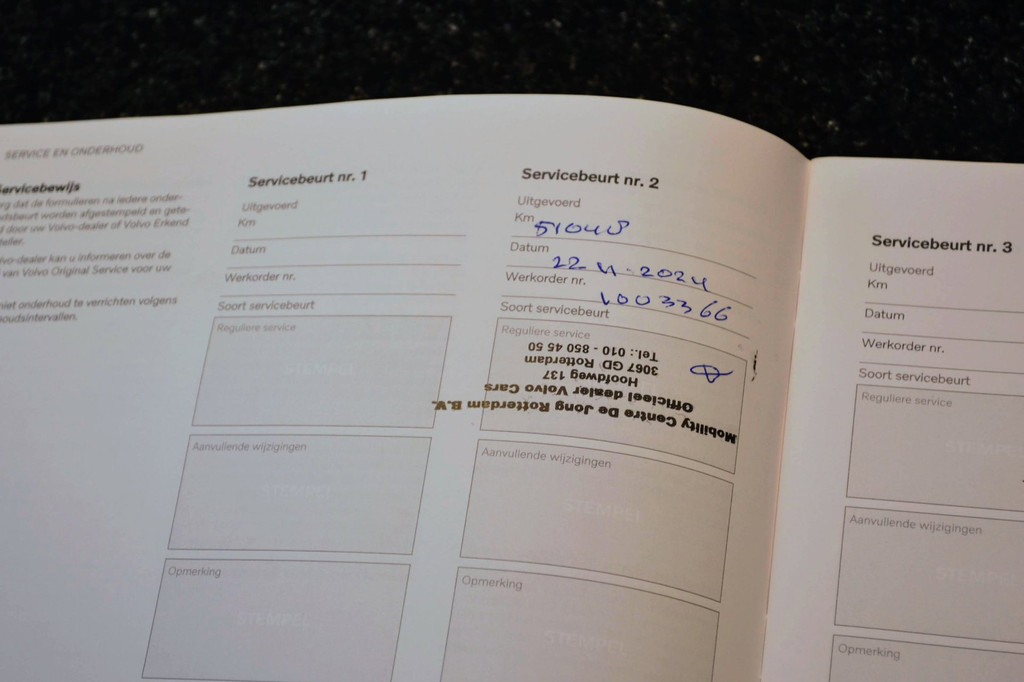 SERVICE EN ONDERHOUD
ervicebewijs
rg dat de formulieren na iedere onder-
dsbeurt worden afgestempeld en gete-
d door uw Volvo-dealer of Volvo Erkend
teller.
lvo-dealer kan u informeren over de
van Volvo Original Service voor uw
niet onderhoud te verrichten volgens
houdsintervallen.
Servicebeurt nr. 1
Uitgevoerd
Km
Datum
Werkorder nr.
Soort servicebeurt
Reguliere service
STEMPEL
Aanvullende wijzigingen
STEMPEL
Opmerking
STEMPEL
Servicebeurt nr. 2
Uitgevoerd
Km 51048
Datum 22-11-2024
Werkorder nr. 1003366
Soort servicebeurt
Reguliere service
Mobility Centre De Jong Rotterdam B.V.
Officieel dealer Volvo Cars
Hoofdweg 137
3067 GD Rotterdam
Tel.: 010 - 850 45 50
Aanvullende wijzigingen
STEMPEL
Opmerking
STEMPEL
Servicebeurt nr. 3
Uitgevoerd
Km
Datum
Werkorder nr.
Soort servicebeurt
Reguliere service
STEMPEL
Aanvullende wijzigingen
STEMPEL
Opmerking